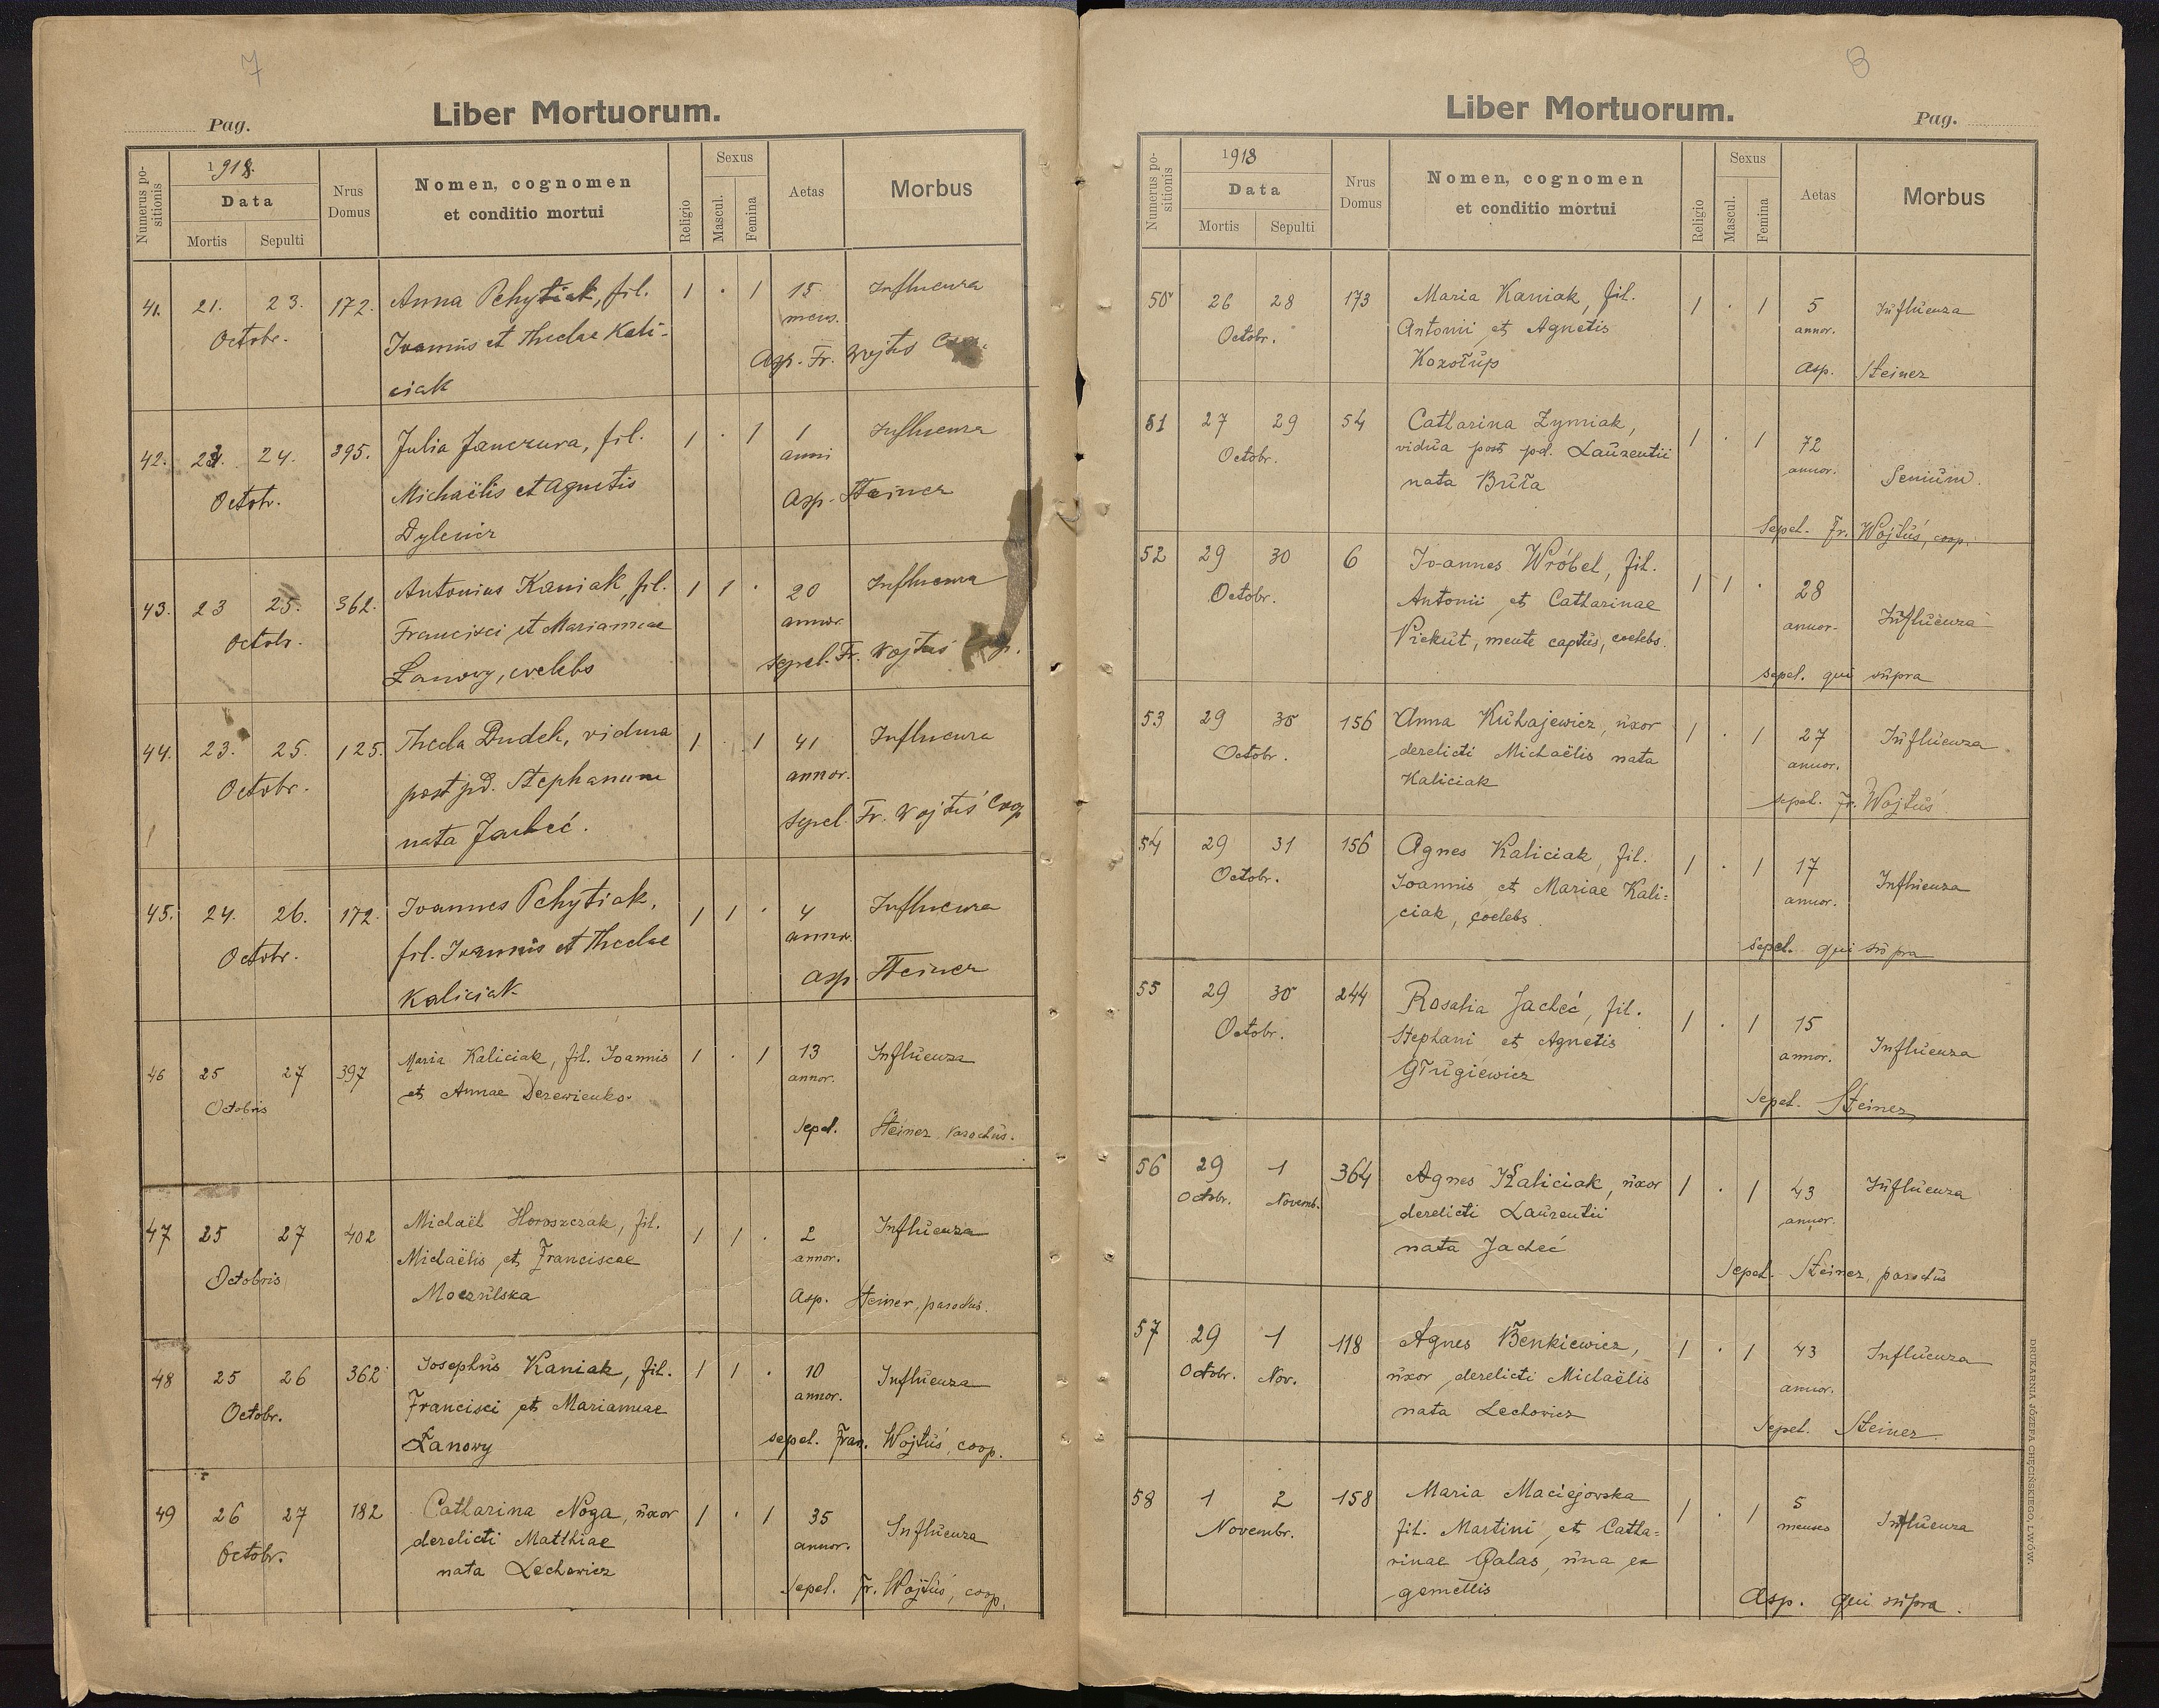 7
Pag.
Liber Mortuorum.
Numerus po-
sitionis
1918.
Data
Mortis
Sepulti
Nrus
Domus
Nomen, cognomen
et conditio mortui
Religio
Sexus
Mascul.
Femina
Aetas
Morbus
41. 21. 23. 172. Anna Pchytiak, fil. 1 · 1 15 Influenza
Octobr. Joannis et Theclae Kali- mens.
ciak Asp. Fr. Wojtuś
42. 24. 395. Julia Janczura, fil. 1 · 1 1 Influenza
Octobr. Michaëlis et Agnetis anni
Dylewicz Asp. Steiner
43. 23 25. 362. Antonius Kaniak, fil. 1 1 · 20 Influenza
Octobr. Francisci et Mariannae annor.
Łanowy, coelebs sepel. Fr. Wojtuś
44. 23. 25. 125. Thecla Dudek, vidua 1 · 1 41 Influenza
Octobr. post pd. Stephanum annor.
nata Jacheć. sepel. Fr. Wojtuś Coop
45. 24. 26. 172. Joannes Pchytiak, 1 1 · 4 Influenza
Octobr. fil. Joannis et Theclae annor.
Kaliciak asp. Steiner
46 25 27 397 Maria Kaliciak, fil. Joannis 1 · 1 13 Influenza
Octobris et Annae Derewienko. annor.
Sepel. Steiner parochus.
47 25 27 402 Michaël Horoszczak, fil. 1 1 · 2 Influenza
Octobris Michaëlis et Franciscae annor.
Moczulska Asp. Steiner, parochus.
48 25 26 362 Josephus Kaniak, fil. 1 1 · 10 Influenza
Octobr. Francisci et Mariannae annor.
Łanowy sepel. Fran. Wojtuś, coop.
49 26 27 182 Catharina Noga, uxor 1 · 1 35 Influenza
Octobr. derelicti Matthiae annor.
nata Lechowicz Sepel. Fr. Wojtuś, coop.
8
Liber Mortuorum.
Pag.
Numerus po-
sitionis
1918
Data
Mortis
Sepulti
Nrus
Domus
Nomen, cognomen
et conditio mortui
Religio
Sexus
Mascul.
Femina
Aetas
Morbus
50 26 28 173 Maria Kaniak, fil. 1 · 1 5 Influenza
Octobr. Antonii et Agnetis annor.
Kozołup Asp. Steiner
51 27 29 54 Catharina Zymiak, 1 · 1 72
Octobr. vidua post pd. Laurentii annor.
nata Buła Senium.
Sepel. Fr. Wojtuś, coop.
52 29 30 6 Joannes Wróbel, fil. 1 1 · 28
Octobr. Antonii et Catharinae annor. Influenza
Piekut, mente captus, coelebs.
sepel. qui supra
53 29 30 156 Anna Kuhajewicz, uxor 1 · 1 27 Influenza
Octobr. derelicti Michaëlis nata annor.
Kaliciak sepel. Fr. Wojtuś
54 29 31 156 Agnes Kaliciak, fil. 1 · 1 17
Octobr. Joannis et Mariae Kali= annor. Influenza
ciak, coelebs
sepel. qui supra
55 29 30 244 Rosalia Jacheć, fil. 1 · 1 15
Octobr. Stephani et Agnetis annor. Influenza
Gługiewicz
Sepel. Steiner
56 29 1 364 Agnes Kaliciak, uxor 1 · 1 43 Influenza
Octobr. Novemb. derelicti Laurentii annor.
nata Jacheć
Sepel. Steiner, parochus
57 29 1 118 Agnes Benkiewicz, 1 · 1 43 Influenza
Octobr. Nov. uxor derelicti Michaëlis annor.
nata Lechowicz Sepel. Steiner.
58 1 2 158 Maria Maciejowska 1 · 1 5 Influenza
Novembr. fil. Martini et Catha= menses
rinae Galas, una ex
gemellis Asp. qui supra.
DRUKARNIA JÓZEFA CHĘCIŃSKIEGO, LWÓW.